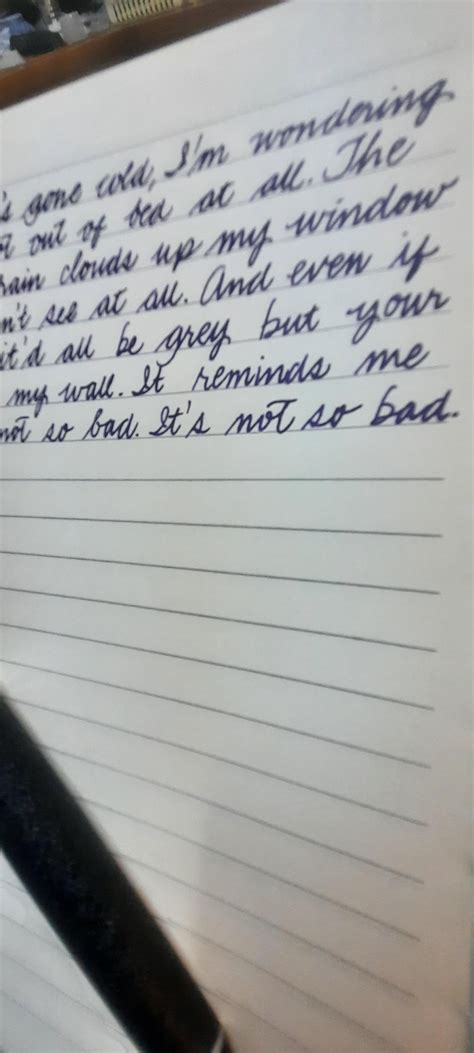 's gone cold, I'm wondering
ot out of bed at all. The
rain clouds up my window
n't see at all. And even if
it'd all be grey but your
my wall. It reminds me
not so bad. It's not so bad.